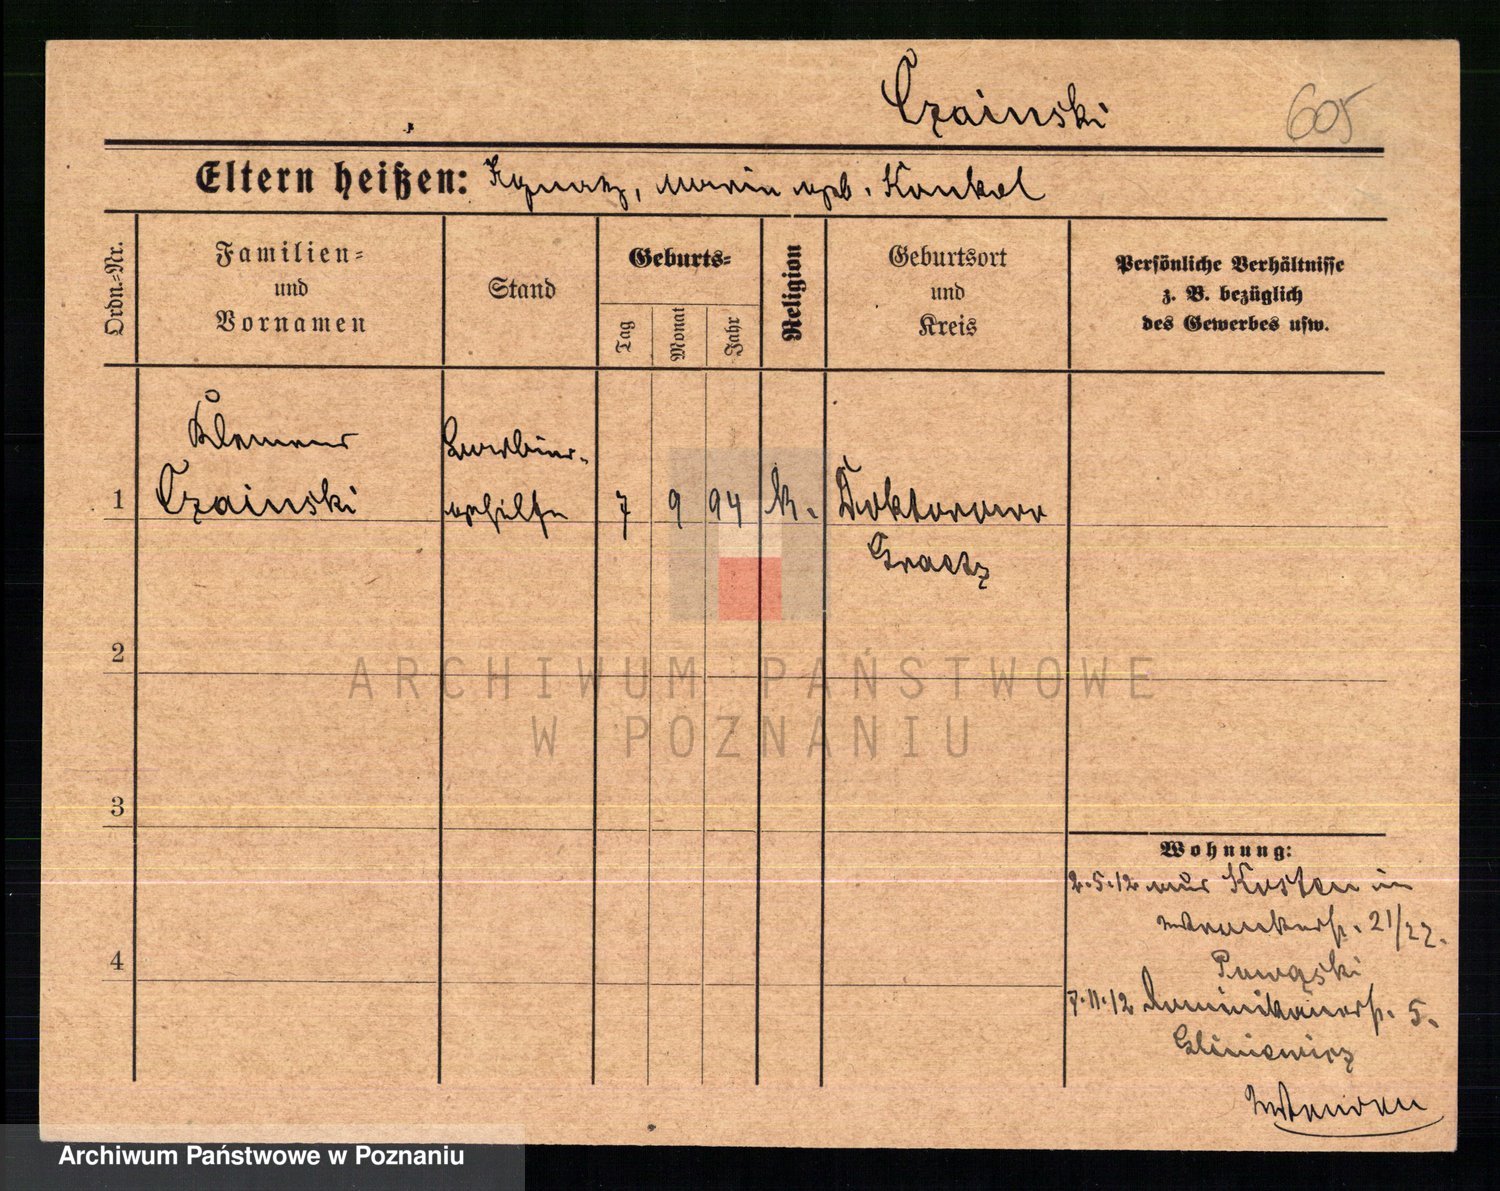 Czainski
605
Eltern heißen: Ignatz, Maria geb. Konkel
Ordn.-Nr.
Familien-
und
Vornamen
Stand
Geburts-
Tag
Monat
Jahr
Religion
Geburtsort
und
Kreis
Persönliche Verhältnisse
z. B. bezüglich
des Gewerbes usw.
Klemens
Barbier-
1 Czainski gehilfe 7 9 94 k. Doktorowo
Graetz
2
ARCHIWUM PAŃSTWOWE
W POZNANIU
3
Wohnung:
2.5.12 aus Kosten in
21/22.
4
7.11.12 Dominikanerstr. 5.
Gliniewicz
Archiwum Państwowe w Poznaniu